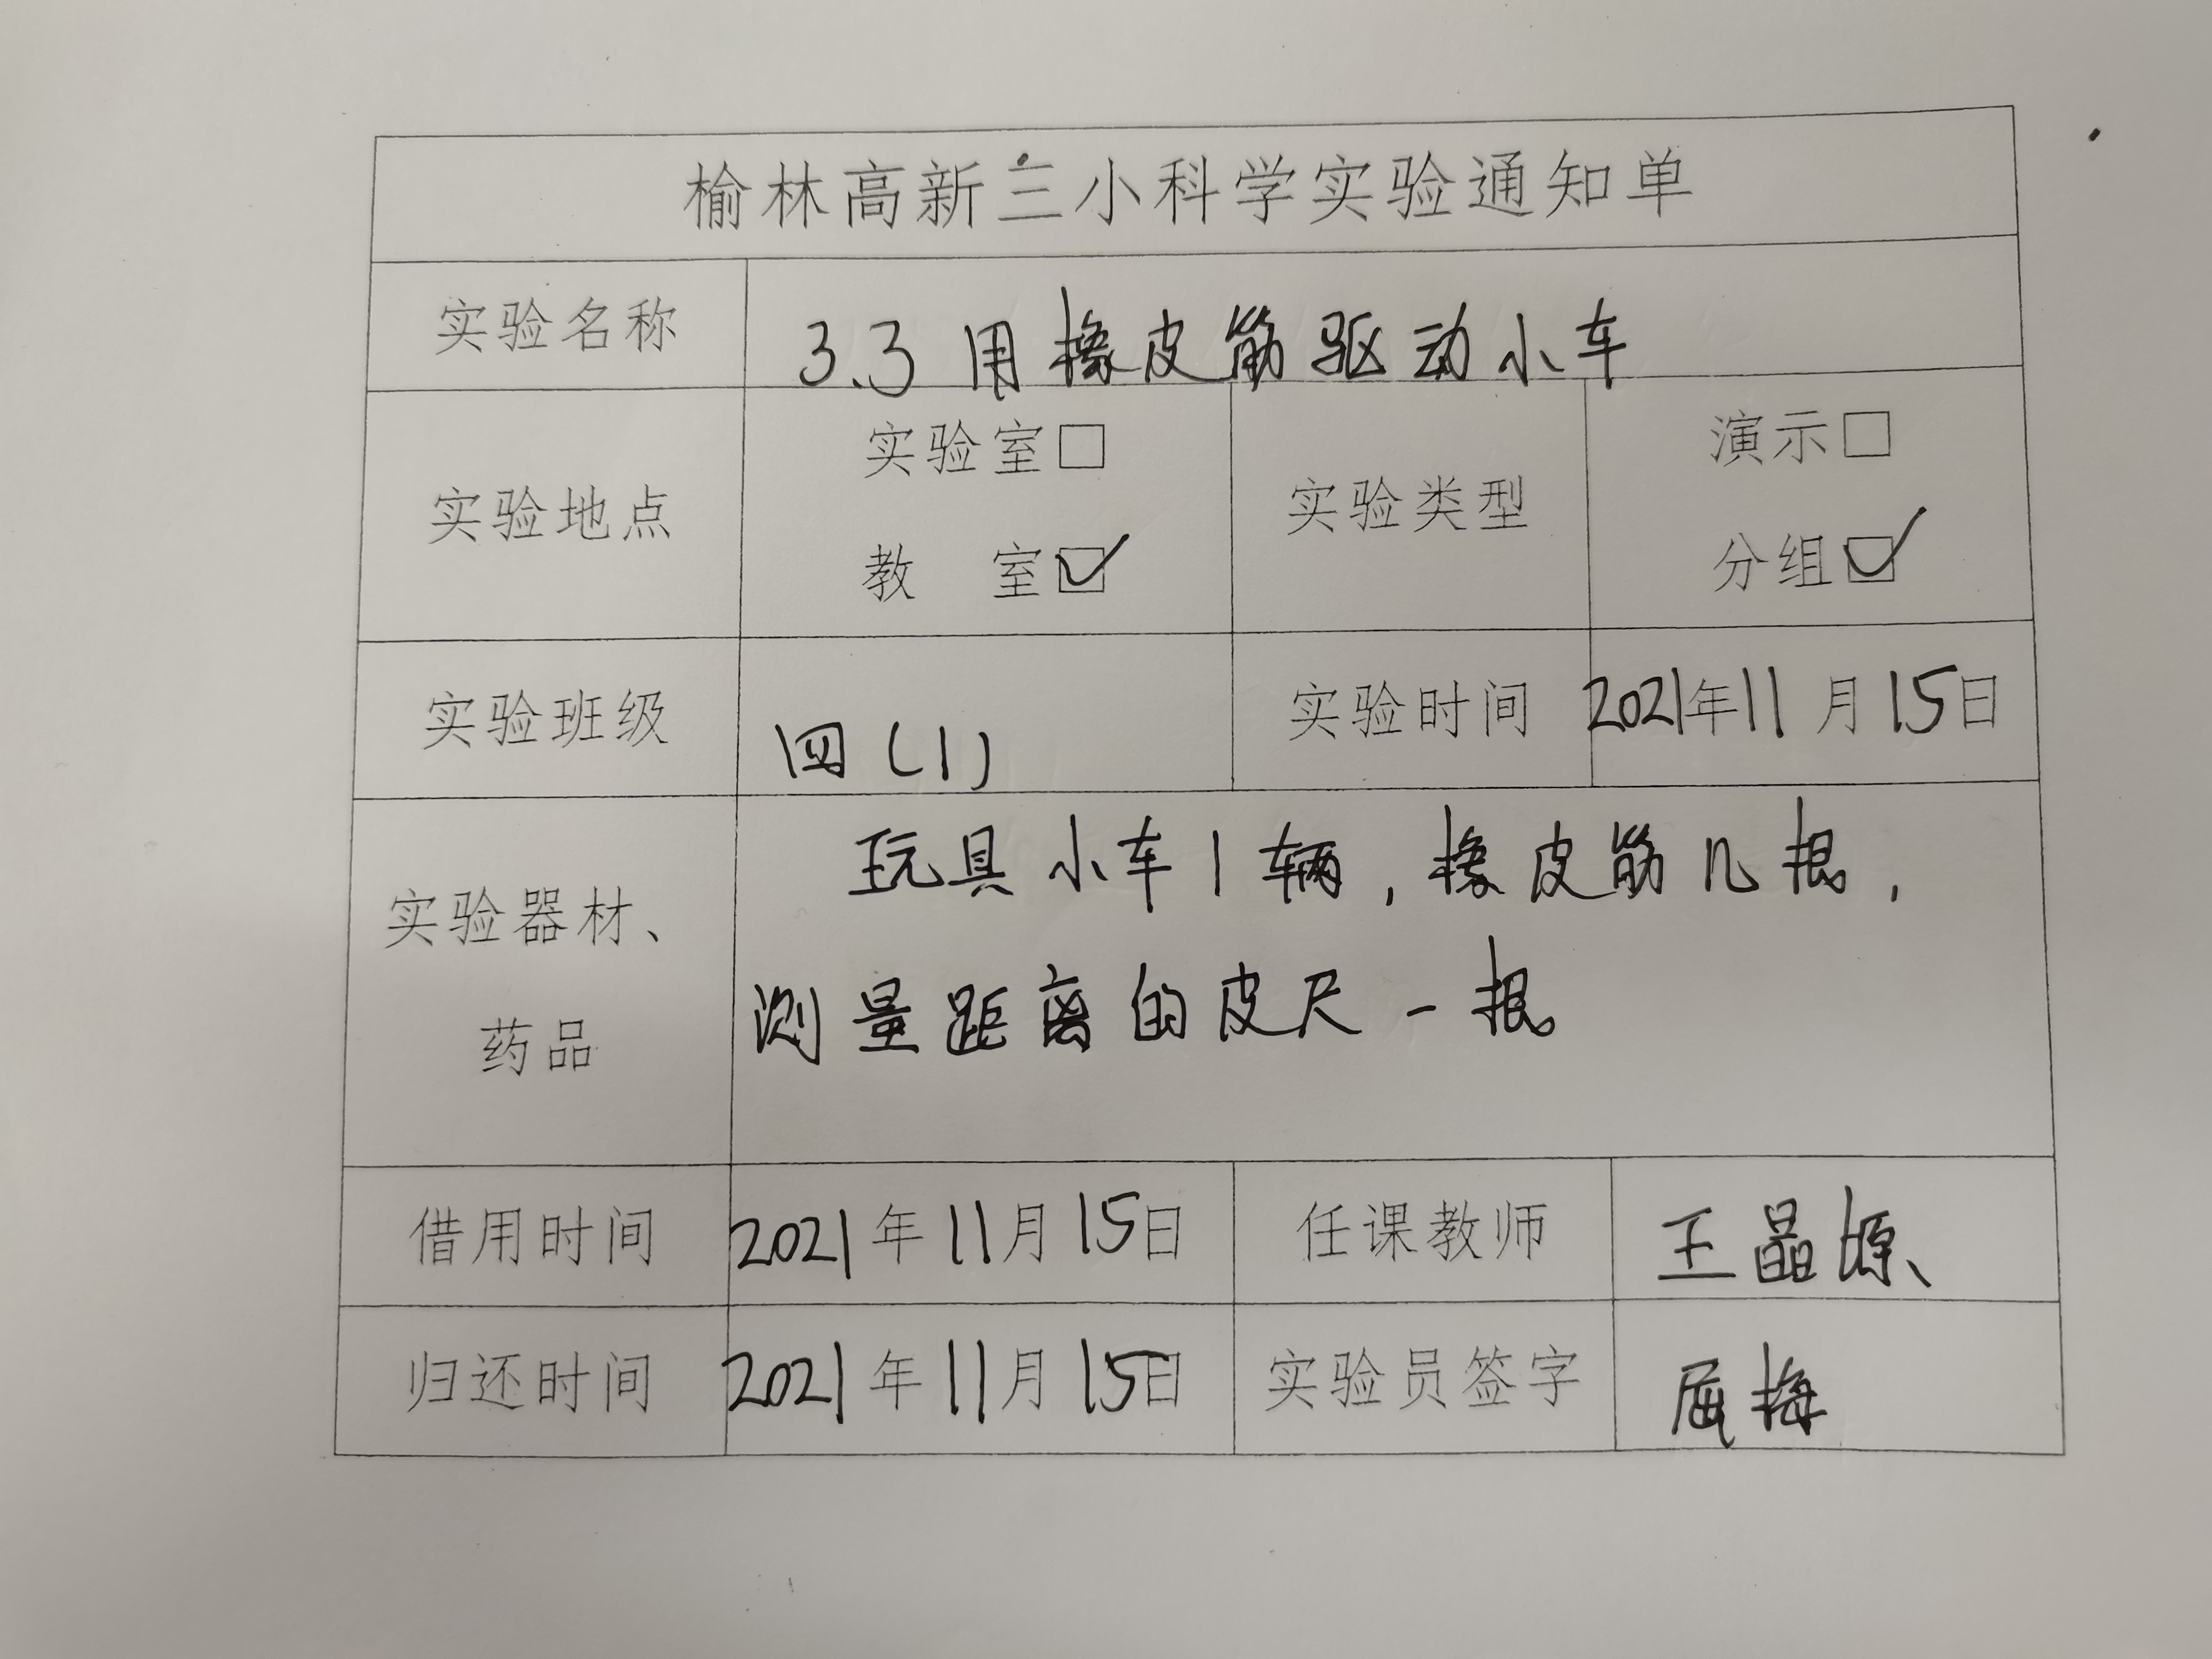 榆林高新三小科学实验通知单
实验名称 3.3 用橡皮筋驱动小车
实验地点 实验室□ 教 室☑ 实验类型 演示□ 分组☑
实验班级 四(1) 实验时间 2021年11月15日
实验器材、药品
玩具小车1辆,橡皮筋几根,
测量距离的皮尺一根
借用时间 2021年11月15日 任课教师 王晶
归还时间 2021年11月15日 实验员签字 屈梅